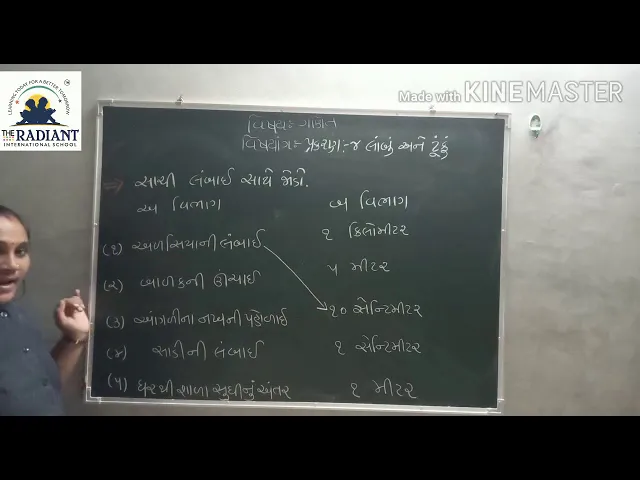 Made with KINEMASTER
LEARNING TODAY FOR A BETTER TOMORROW
THE RADIANT
INTERNATIONAL SCHOOL
વિષય:- ગણિત
વિષયાંગ:- પ્રકરણ:-૪ લાંબુ અને ટૂંકું
સાચી લંબાઈ સાથે જોડો.
અ વિભાગ બ વિભાગ
(૧) અળસિયાની લંબાઈ ૧ કિલોમીટર
(૨) બાળકની ઊંચાઈ ૫ મીટર
(૩) આંગળીના નખની પહોળાઈ ૧૦ સેન્ટિમીટર
(૪) સાડીની લંબાઈ ૧ સેન્ટિમીટર
(૫) ઘરથી શાળા સુધીનું અંતર ૧ મીટર